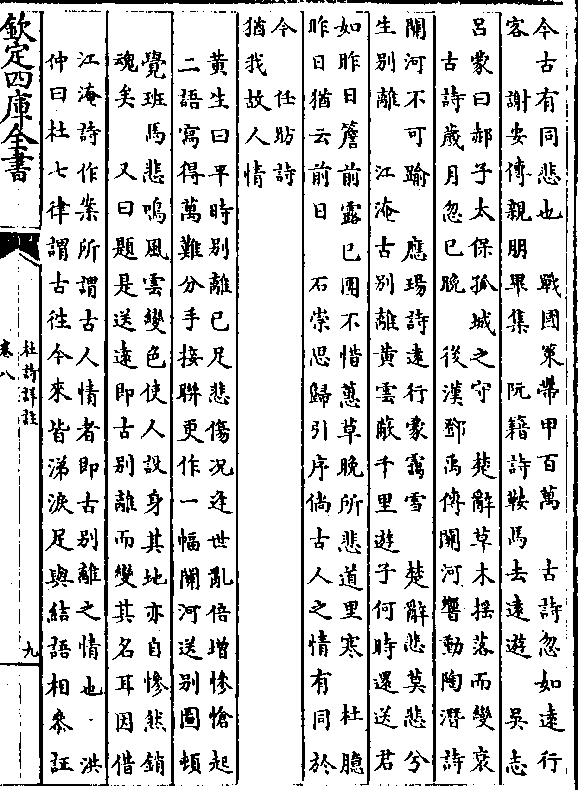 今古有同悲也　戰國策帶甲百萬　古詩忽如遠行
客　謝安傳親朋畢集　阮籍詩鞍馬去遠遊　吳志
呂蒙曰郝子太保孤城之守　楚辭草木揺落而變衰
古詩歲月忽已晚　後漢鄧禹傳闗河響動陶潛詩
闗河不可踰　應瑒詩遠行蒙霜雪　楚辭悲莫悲兮
生別離　江淹古別離黄雲蔽千里遊子何時還送君
如昨日簷前露已團不惜蕙草晚所悲道里寒　杜臆
昨日猶云前日　石崇思歸引序倘古人之情有同於
今　任昉詩
猶我故人情
黄生曰平時別離已足悲傷況逢世亂倍增慘愴起
二語寫得萬難分手接聯更作一幅闗河送別圖頓
覺班馬悲鳴風雲變色使人設身其地亦自慘然銷
魂矣　又曰題是送遠即古別離而變其名耳因借
江淹詩作案所謂古人情者即古別離之情也　洪
仲曰杜七律謂古徃今來皆涕淚足與結語相參証
欽定四庫全書
杜詩詳註
卷八
九